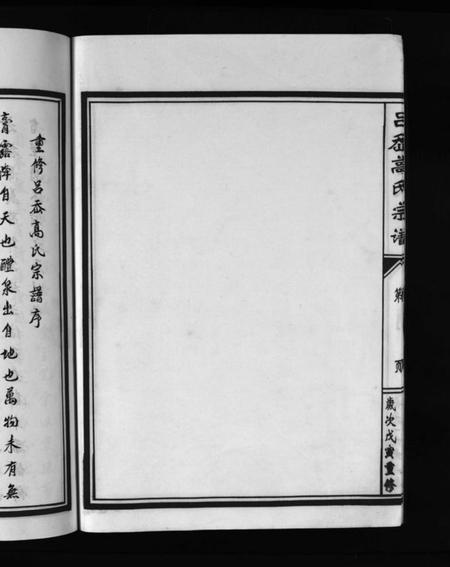 吕岙高氏宗譜
歲次戊寅重修
重修吕岙高氏宗譜序
膏露降自天也醴泉出自地也萬物未有無